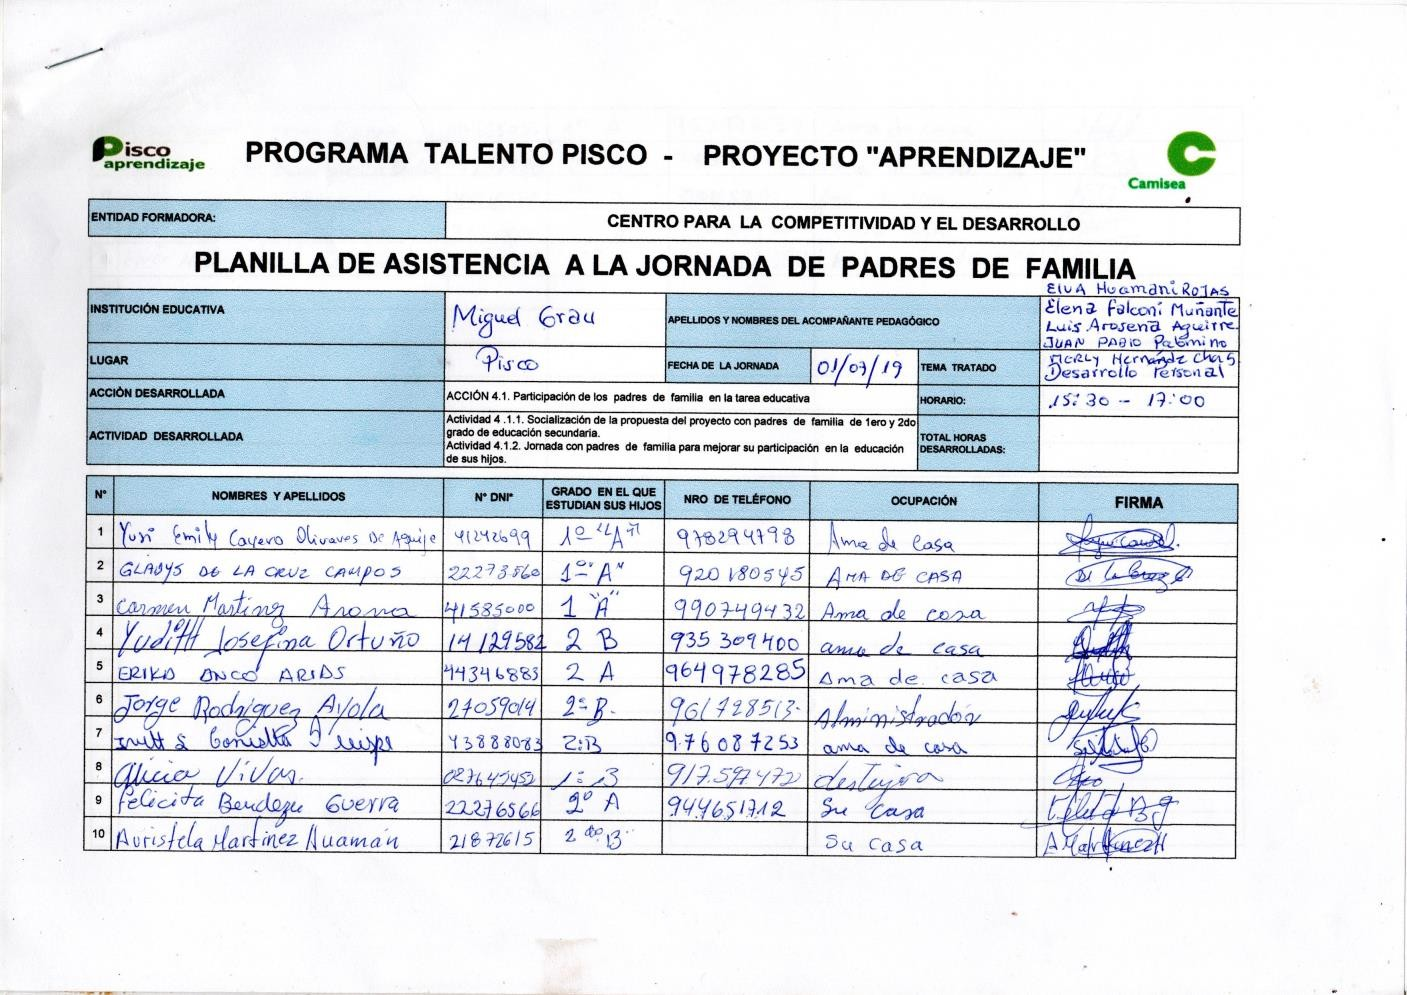 Pisco
aprendizaje
PROGRAMA TALENTO PISCO - PROYECTO "APRENDIZAJE"
Camisea
ENTIDAD FORMADORA: CENTRO PARA LA COMPETITIVIDAD Y EL DESARROLLO
PLANILLA DE ASISTENCIA A LA JORNADA DE PADRES DE FAMILIA
INSTITUCIÓN EDUCATIVA Miguel Grau
APELLIDOS Y NOMBRES DEL ACOMPAÑANTE PEDAGÓGICO
Elva Huamani ROJAS
Elena Falconí Muñante
Luis Arosena Aguirre
JUAN PABlo Palomino
MERLY Hernández
LUGAR Pisco FECHA DE LA JORNADA 01/07/19 TEMA TRATADO Desarrollo Personal
ACCIÓN DESARROLLADA ACCIÓN 4.1. Participación de los padres de familia en la tarea educativa HORARIO: 15:30 - 17:00
ACTIVIDAD DESARROLLADA
Actividad 4 .1.1. Socialización de la propuesta del proyecto con padres de familia de 1ero y 2do
grado de educación secundaria.
Actividad 4.1.2. Jornada con padres de familia para mejorar su participación en la educación
de sus hijos.
TOTAL HORAS
DESARROLLADAS:
N° NOMBRES Y APELLIDOS N° DNI° GRADO EN EL QUE ESTUDIAN SUS HIJOS NRO DE TELÉFONO OCUPACIÓN FIRMA
1 Yusi Emily Cayero Olivares De Aquije 41242699 1º "A" 978294798 Ama de Casa
2 GLADYS DE LA CRUZ CAMPOS 22273560 1º "A" 920180545 AMA DE CASA De la Cruz
3 Carmen Martinez Arona 41585000 1 "A" 990749432 Ama de casa
4 Yudith Josefina Ortuño 14129582 2 B 935 309400 ama de casa
5 ERIKA ANCO ARIAS 44346883 2 A 964978285 Ama de casa
6 Jorge Rodríguez Ayola 27059014 2º B. 961728513 Administrador
7 43888083 2:B 976087253 ama de casa
8 Alicia Vivas. 027645452 917.597472
9 Felicita Bendezu Guerra 22276566 2º A 944651712 Su casa
10 Auristela Martinez Huamán 21872615 2 do B Su casa A Martinez H